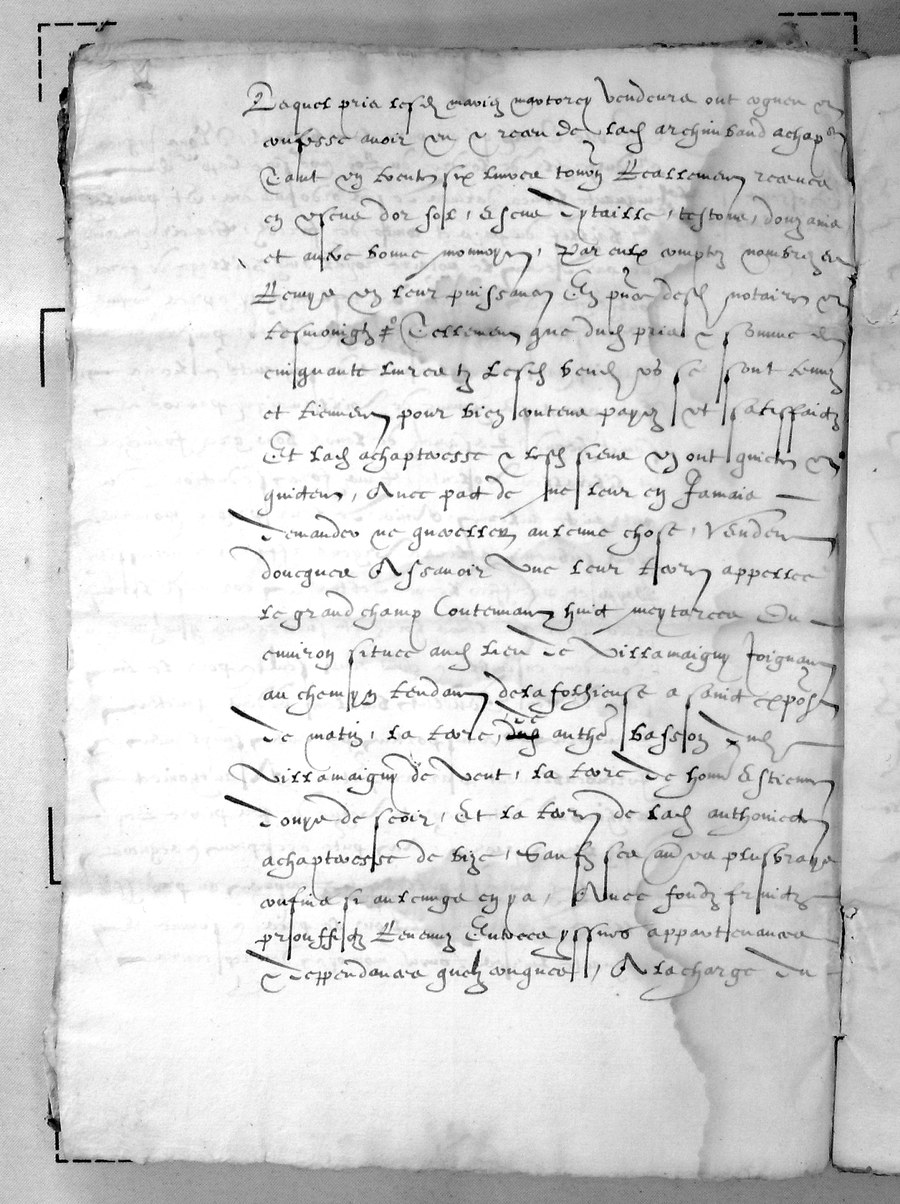 Duquel pris lesd mariez vendeurs ont cogneu et
confesse avoir eu et receu de lad archimbaud achapt
Tant en trente six livres tourn Reallement receues
en escuz dor sol, escuz, testons, douzains
et aultre bonne monnoye, Par eulx comptez nombrez et
Remys en leur puissance En pnce desd notaire et
tesmoingtz Tellement que dud pris et somme de
cinquante livres tz lesd vend se sont tenuz
et tiennent pour bien contens payez et satisfaictz
Et lad achaptresse et lesd siens en ont quicte et
quictent, Avec pact de ne leur en Jamais
Demander ne quereller aulcune chose, Vendent
doncques Assavoir une leur terre appellee
le grand champ Contenant huict meytarees ou
environ situee aud lieu de Villamaigny Joignant
au chemyn tendant de la folhieuse a sainct
de matin, la terre anthe basson dud
Villamaigny de vent, la terre de hom Estienne
de soir, Et la terre de lad anthoinette
achaptresse de bize, Saufz ses aues plus vrays
confins si aulcungs en ya, Avec fondz fruictz
prouffictz Revenuz Entrees yssues appartenances
Deppendances quelzconques, A la charge du